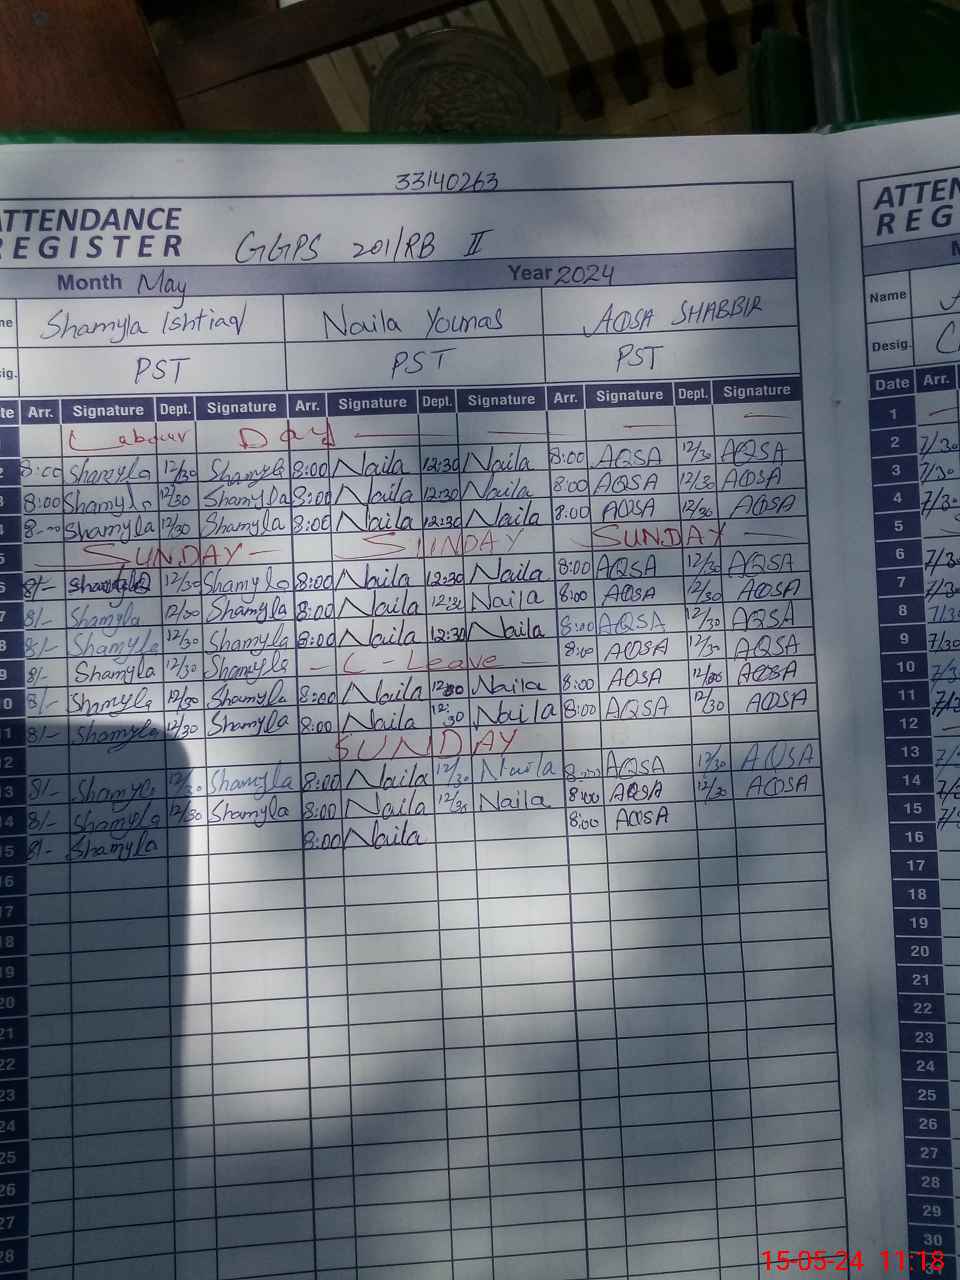 33140263
ATTENDANCE REGISTER GGPS 201/RB II
Month May Year 2024
Shamyla Ishtiaq Naila Younas AQSA SHABBIR
PST PST PST
Arr. Signature Dept. Signature Arr. Signature Dept. Signature Arr. Signature Dept. Signature
Labour Day
8:00 Shamyla 12/30 Shamyla 8:00 Naila 12:30 Naila 8:00 AQSA 12/30 AQSA
8:00 Shamyla 12/30 Shamyla 8:00 Naila 12:30 Naila 8:00 AQSA 12/30 AQSA
Shamyla 12/30 Shamyla 8:00 Naila 12:30 Naila 8:00 AQSA 12/30 AQSA
SUNDAY SUNDAY SUNDAY
8/- Shamyla 12/30 Shamyla 8:00 Naila 12:30 Naila 8:00 AQSA 12/30 AQSA
8/- Shamyla 12/30 Shamyla 8:00 Naila 12:30 Naila 8:00 AQSA 12/30 AQSA
8/- Shamyla 12/30 Shamyla 8:00 Naila 12:30 Naila 8:00 AQSA 12/30 AQSA
8/- Shamyla 12/30 Shamyla - C - Leave - 8:00 AQSA 12/30 AQSA
8/- Shamyla 12/30 Shamyla 8:00 Naila 12:30 Naila 8:00 AQSA 12/30 AQSA
8/- Shamyla 12/30 Shamyla 8:00 Naila 12:30 Naila 8:00 AQSA 12/30 AQSA
12 SUNDAY
8/- Shamyla 12/30 Shamyla 8:00 Naila 12/30 Naila 8:00 AQSA 12/30 AQSA
8/- Shamyla 12/30 Shamyla 8:00 Naila 12/30 Naila 8:00 AQSA 12/30 AQSA
8/- Shamyla 8:00 Naila 8:00 AQSA
16
17
18
19
20
21
22
23
24
25
26
27
28
ATTEN
REG
Name
Desig.
Date Arr.
1
2 7/30
3 7/30
4 7/30
5
6 7/30
7 7/30
8 7/30
9 7/30
10
11
12
13
14
15
16
17
18
19
20
21
22
23
24
25
26
27
28
29
30
31
15-05-24 11:18